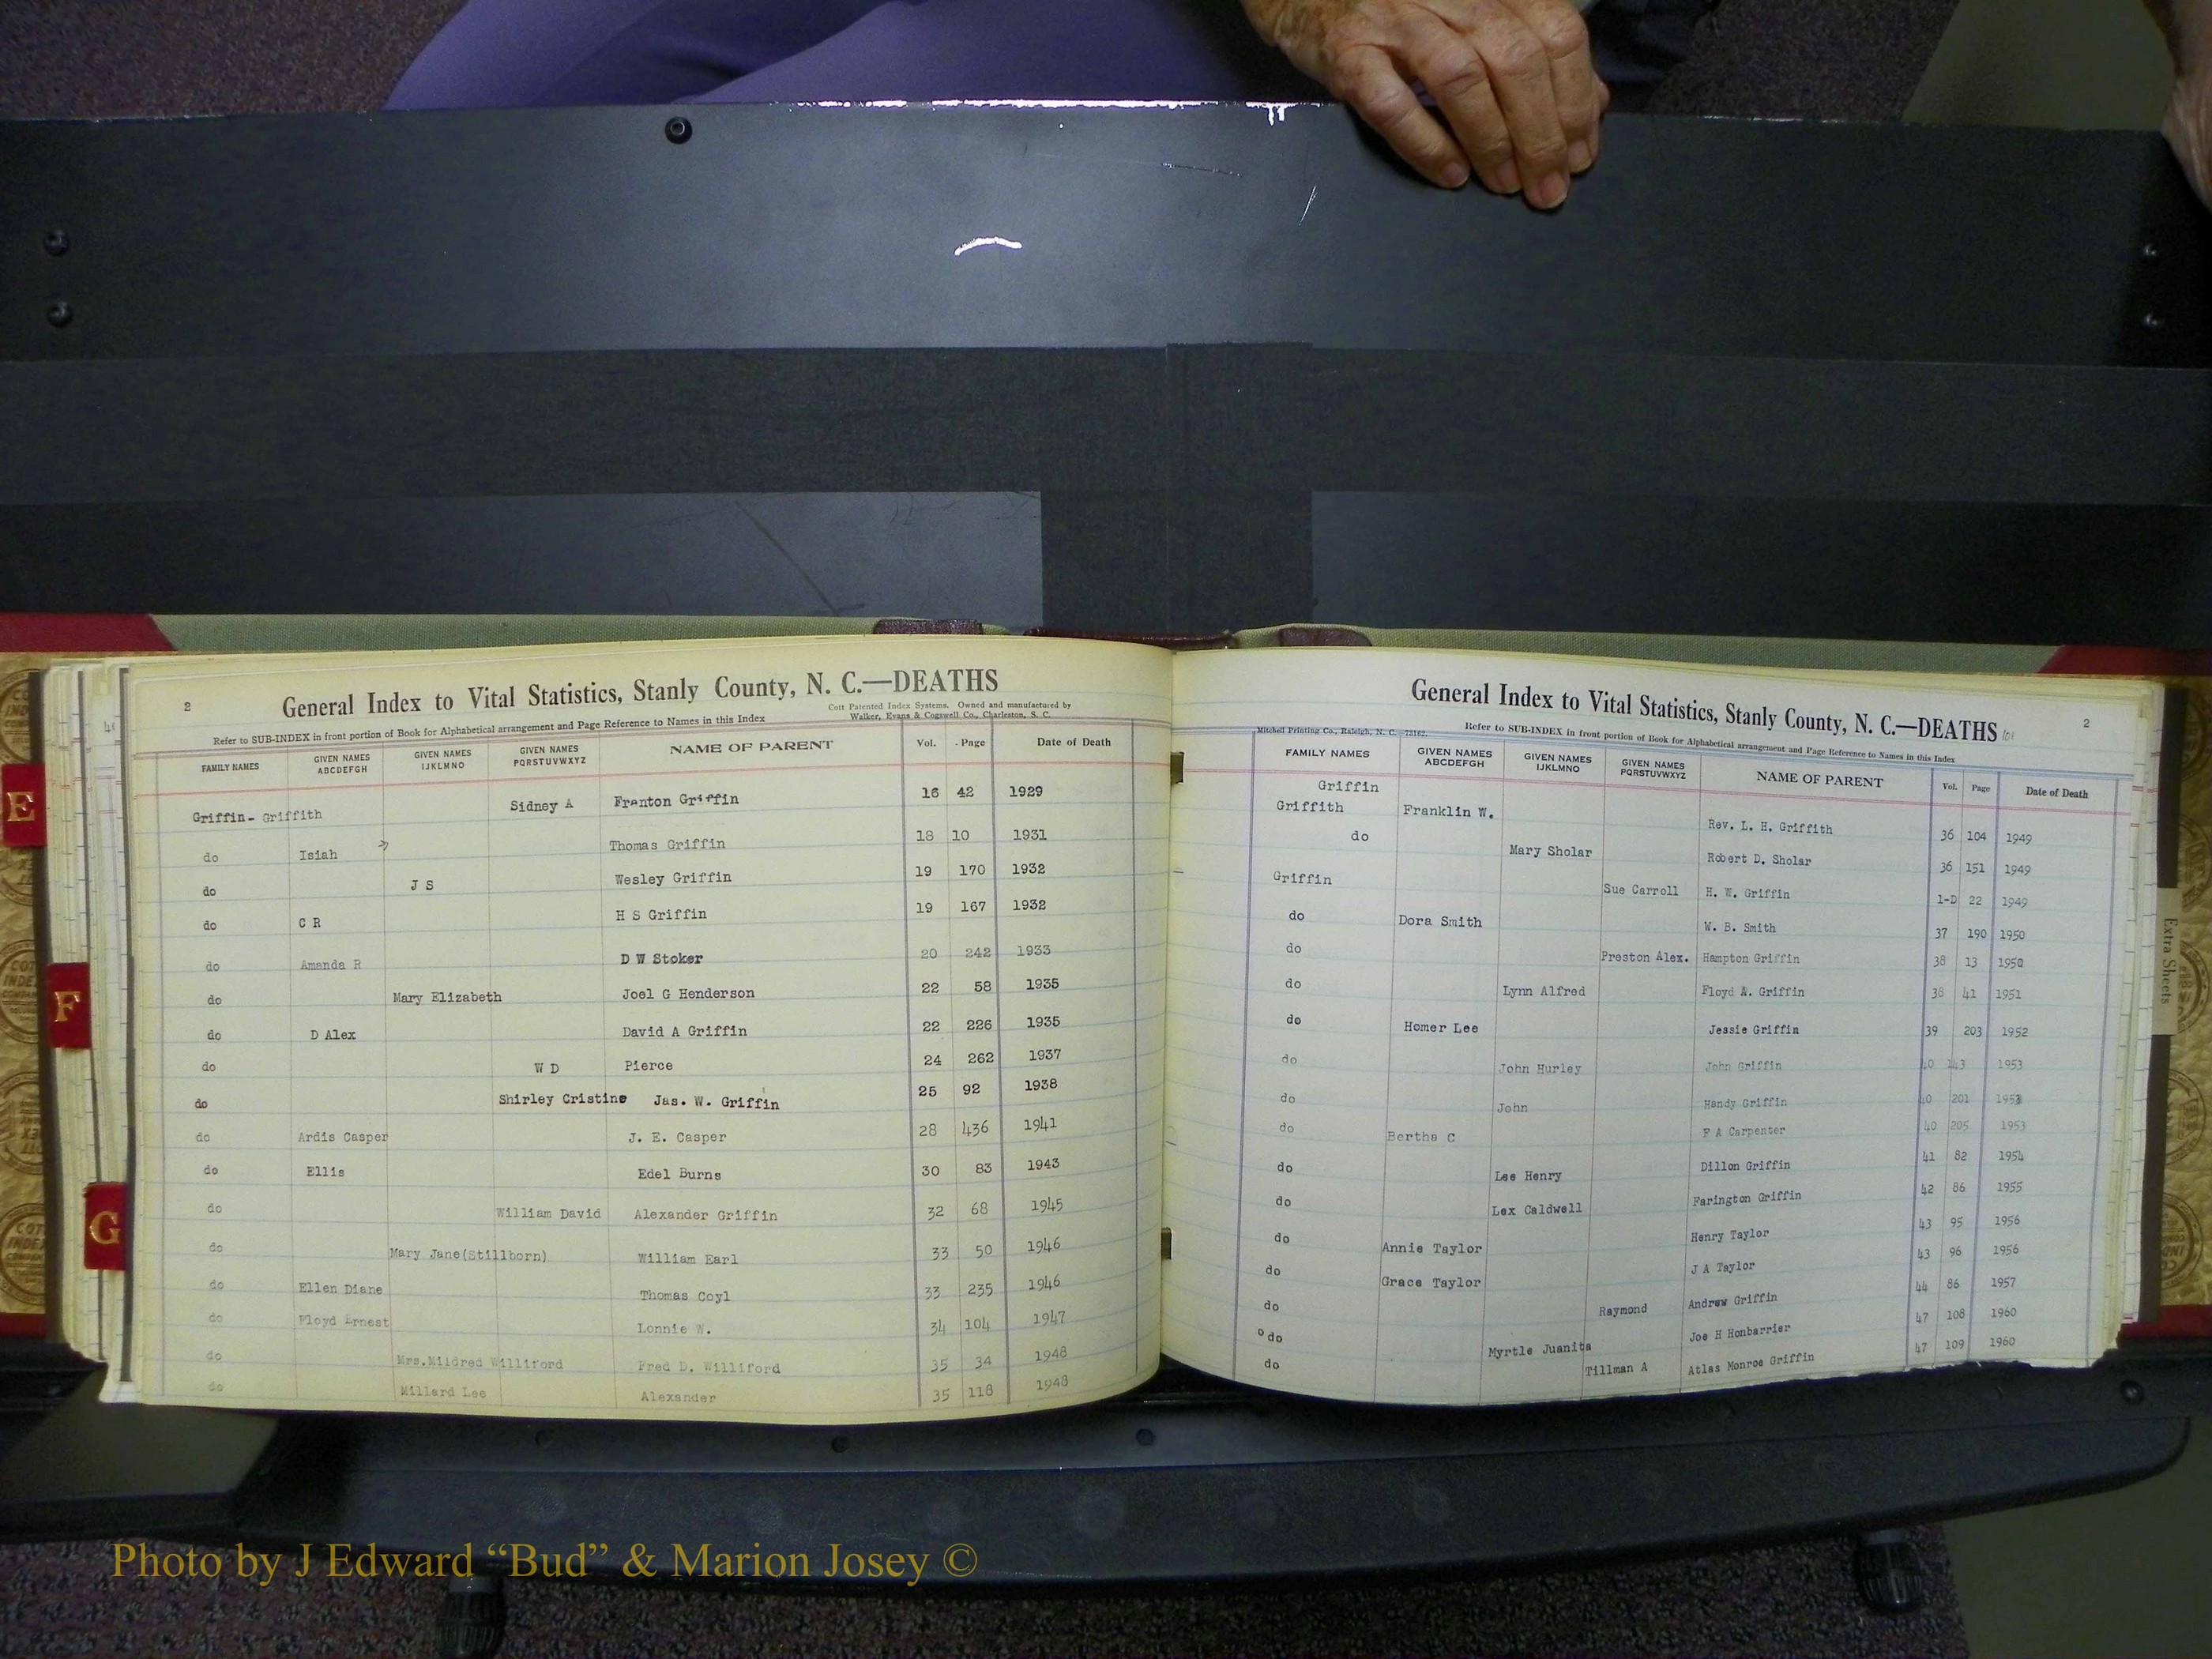 2
General Index to Vital Statistics, Stanly County, N. C.—DEATHS
Cott Patented Index Systems. Owned and manufactured by
Walker, Evans & Cogswell Co., Charleston, S. C.
Refer to SUB-INDEX in front portion of Book for Alphabetical arrangement and Page Reference to Names in this Index
FAMILY NAMES GIVEN NAMES ABCDEFGH GIVEN NAMES IJKLMNO GIVEN NAMES PQRSTUVWXYZ NAME OF PARENT Vol. Page Date of Death
Griffin- Griffith Sidney A Franton Griffin 16 42 1929
do Isiah Thomas Griffin 18 10 1931
do J S Wesley Griffin 19 170 1932
do C R H S Griffin 19 167 1932
do Amanda R D W Stoker 20 242 1933
do Mary Elizabeth Joel G Henderson 22 58 1935
do D Alex David A Griffin 22 226 1935
do W D Pierce 24 262 1937
do Shirley Cristine Jas. W. Griffin 25 92 1938
do Ardis Casper J. E. Casper 28 436 1941
do Ellis Edel Burns 30 83 1943
do William David Alexander Griffin 32 68 1945
do Mary Jane(Stillborn) William Earl 33 50 1946
do Ellen Diane Thomas Coyl 33 235 1946
do Floyd Ernest Lonnie W. 34 104 1947
do Mrs.Mildred Williford Fred D. Williford 35 34 1948
do Millard Lee Alexander 35 118 1948
General Index to Vital Statistics, Stanly County, N. C.—DEATHS 101
2
Mitchell Printing Co., Raleigh, N. C.
Refer to SUB-INDEX in front portion of Book for Alphabetical arrangement and Page Reference to Names in this Index
FAMILY NAMES GIVEN NAMES ABCDEFGH GIVEN NAMES IJKLMNO GIVEN NAMES PQRSTUVWXYZ NAME OF PARENT Vol. Page Date of Death
Griffin
Griffith Franklin W. Rev. L. H. Griffith 36 104 1949
do Mary Sholar Robert D. Sholar 36 151 1949
Griffin Sue Carroll H. W. Griffin 1-D 22 1949
do Dora Smith W. B. Smith 37 190 1950
do Preston Alex. Hampton Griffin 38 13 1950
do Lynn Alfred Floyd A. Griffin 38 41 1951
do Homer Lee Jessie Griffin 39 203 1952
do John Hurley John Griffin 40 143 1953
do John Handy Griffin 40 201 1953
do Bertha C F A Carpenter 40 205 1953
do Lee Henry Dillon Griffin 41 82 1954
do Lex Caldwell Farington Griffin 42 86 1955
do Annie Taylor Henry Taylor 43 95 1956
do Grace Taylor J A Taylor 43 96 1956
do Raymond Andrew Griffin 44 86 1957
do Myrtle Juanita Joe H Honbarrier 47 108 1960
do Tillman A Atlas Monroe Griffin 47 109 1960
E
F
G
Extra Sheets
Photo by J Edward “Bud” & Marion Josey ©